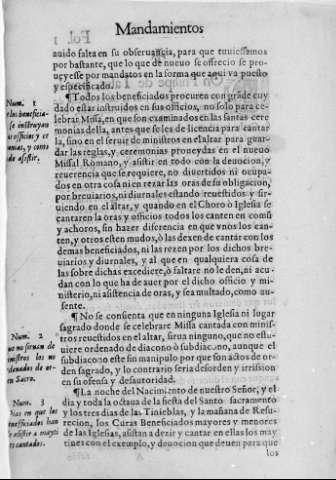 Mandamientos
auido falta en su obseruancia, para que tuuiessemos
por bastante, que lo que de nueuo se ofrecio se pro-
ueyesse por mandatos en la forma que aqui va puesto
y especificado.
¶Todos los beneficiados procuren con grãde cuy
dado estar instruidos en sus oficios, no solo para ce-
lebrar Missa, en que son examinados en las santas cere
monias della, antes que se les de licencia para cantar
la, sino en el seruir de ministros en el altar para guar-
dar las reglas, y ceremonias proueydas en el nueuo
Missal Romano, y asistir en todo con la deuocion, y
reuerencia que se requiere, no diuertidos ni ocupa-
dos en otra cosa ni en rezar las oras de su obligacion,
por breuiarios, ni diurnales estando reuestidos, y sir-
uiendo en el altar, y quando en el Choro ò Iglesia se
cantaren la oras y officios todos los canten en comũ
y achoros, sin hazer diferencia en que vnos los can-
ten, y otros esten mudos, ò las dexen de cantar con los
demas beneficiados, ni las rezen por los dichos bre-
uiarios y diurnales, y al que en qualquiera cosa de
las sobre dichas excediere, ò faltare no le den, ni acu-
dan con lo que ha de auer por el dicho officio y mi-
nisterio, ni asistencia de oras, y sea multado, como au-
sente.
¶No se consienta que en ninguna Iglesia ni lugar
sagrado donde se celebrare Missa cantada con minis-
tros reuestidos en el altar, sirua ninguno, que no estu-
uiere ordenado de diacono ò subdiacono, aunque el
subdiacono este sin manipulo por que son actos de or-
den sagrado, y lo contrario seria desorden y irrission
en su ofensa y desautoridad.
¶La noche del Nacimiento de nuestro Señor, y el
dia y toda la octaua de la fiesta del Santo sacramento
y los tres dias de las Tinieblas, y la mañana de Resu-
recion, los Curas Beneficiados mayores y menores
de las Iglesias, asistan a dezir y cantar en ellas los may
tines con el exemplo, y deuocion que deuen para que
los
Num. 1
se instruyan
de asistir.
Num. 2
Num. 3